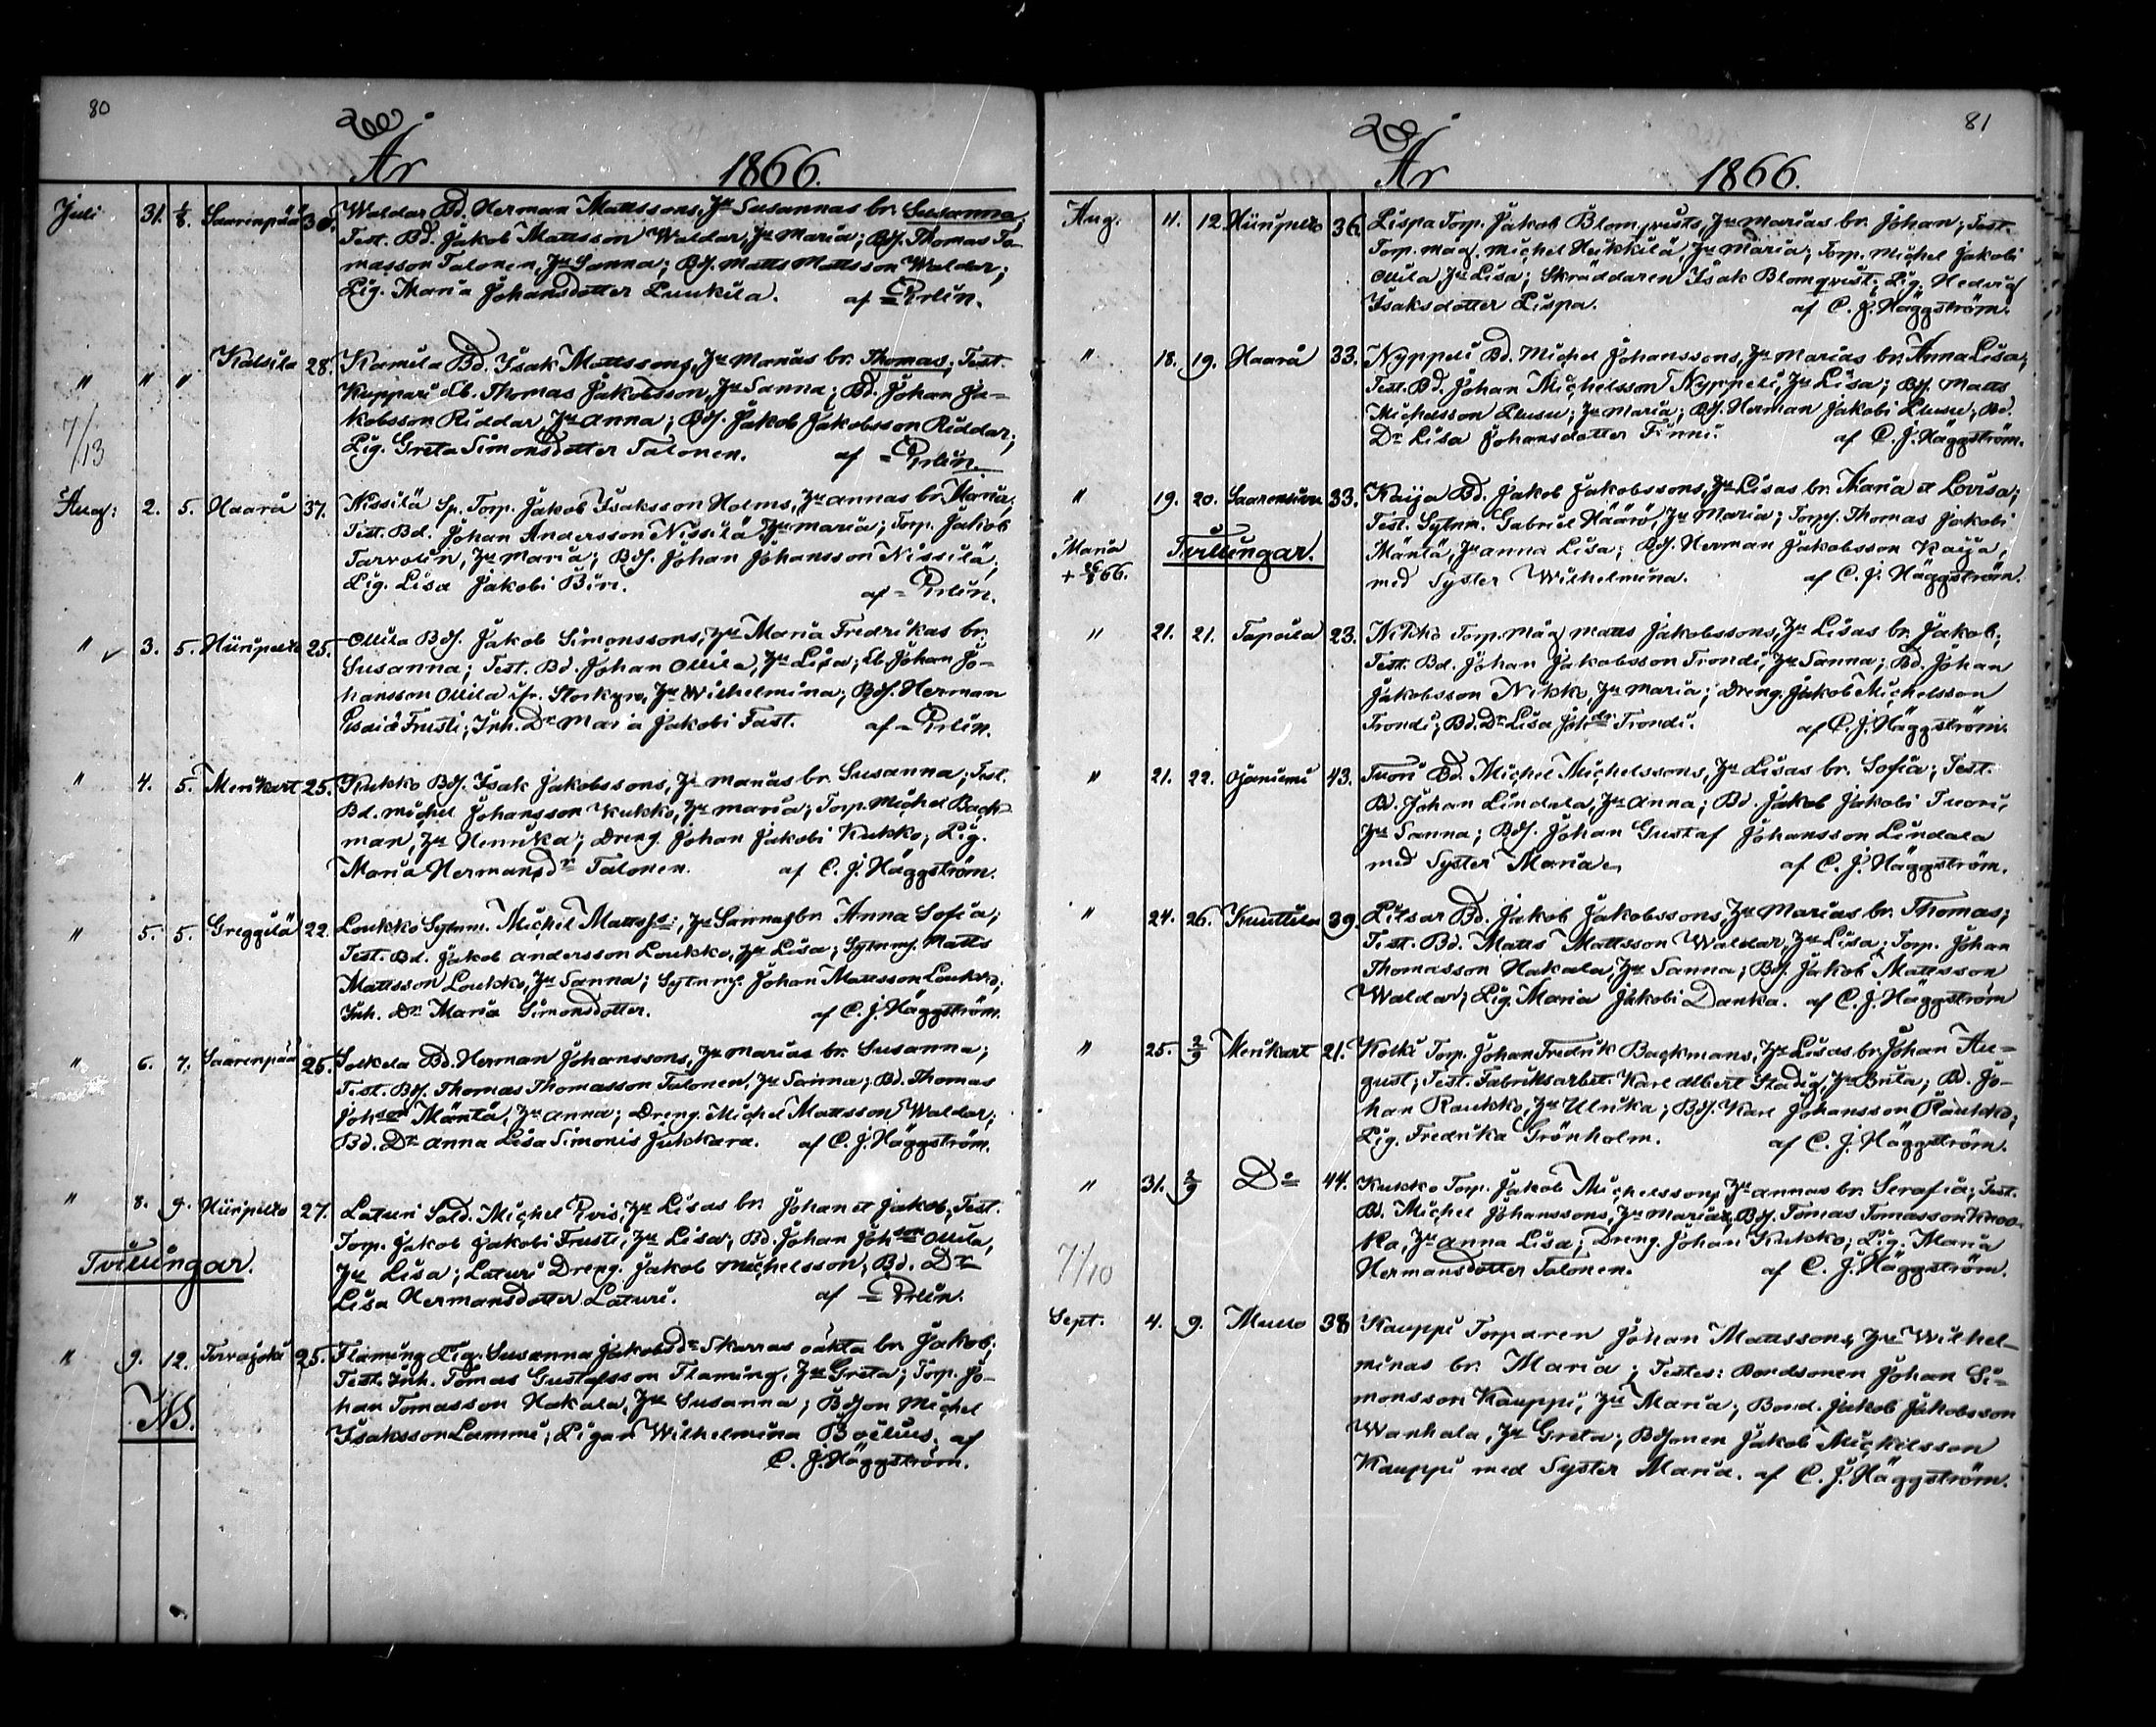 80
År 1866.
Juli 31. 1/8. Saarenpää 30. Waldar Bd. Herman Mattssons, Hu Susannas br. Susanna;
Test. Bd. Jakob Mattsson Waldar, Hu Maria; Bdʃ. Thomas To-
masson Talonen, Hu Sanna; Bdʃ. Matts Mattsson Waldar;
Pig. Maria Johansdotter Luukila. af
" " " Kalsila 28. Kamila Bd. Isak Mattssons, Hu Marias br. Thomas; Test.
Kuppari Thomas Jakobsson, Hu Sanna; Bd. Johan Ja-
kobsson Riddar, Hu Anna; Bdʃ. Jakob Jakobsson Riddar;
7/13
Pig. Greta Simonsdotter Talonen. af
Aug: 2. 5. Haarå 37. Nissilä Sp. Torp. Jakob Isaksson Holms, Hu Annas br. Maria;
Test. Bd. Johan Andersson Nissilä, Hu Maria; Torp. Jakob
Tarvolin, Hu Maria; Bdʃ. Johan Johansson Nissilä;
Pig. Lisa Jakobi af
" 3. 5. Hiiripelto 25. Ollila Bdʃ. Jakob Simonssons, Hu Maria Fredrikas br.
Susanna; Test. Bd. Johan Ollila, Hu Lisa; Johan Jo-
hansson Ollila ifr. Storkyro, Hu Wilhelmina; Bdʃ. Herman
Esaiæ Frusti; Inh. Dr Maria Jakobi Fast. af
" 4. 5. Merikart 25. Kukko Bdʃ. Isak Jakobssons, Hu Marias br. Susanna; Test.
Bd. Michel Johansson Kukko, Hu Maria; Torp. Michel Back-
man, Hu Henrika; Dreng. Johan Jakobi Kukko; Pig.
Maria Hermansdr Talonen. af C. J. Häggström.
" 5. 5. Greggilä 22. Loukko Sytnm. Michel Mattsss, Hu Sannas br. Anna Sofia;
Test. Bd. Jakob Andersson Loukko, Hu Lisa; Sytnmʃ. Matts
Mattsson Loukko, Hu Sanna; Sytnmʃ. Johan Mattsson Loukko;
Inh. Dr Maria Simonsdotter. af C. J. Häggström.
" 6. 7. Saarenpää 25. Solkela Bd. Herman Johanssons, Hu Marias br. Susanna;
Test. Bdʃ. Thomas Thomasson Talonen, Hu Sanna; Bd. Thomas
Johson Mäntä, Hu Anna; Dreng. Michel Mattsson Waldar;
Bd. Dr Anna Lisa Simonis Jukkara. af C. J. Häggström.
" 8. 9. Hiiripelto 27. Laturi Sold. Michel Hu Lisas br. Johan et Jakob; Test.
Torp. Jakob Jakobi Frusti, Hu Lisa; Bd. Johan Johson Ollila,
Tvillingar.
Hu Lisa; Laturi Dreng. Jakob Michelsson; Bd. Dr
Lisa Hermansdotter Laturi. af
" 9. 12. Tervajoki 25. Flaming Pig. Susanna Jakobsdr Skarras oäkta br. Jakob;
Test. Inh. Tomas Gustafsson Flaming, Hu Greta; Torp. Jo-
han Tomasson Hakala, Hu Susanna; Bdson Michel
NB.
Isaksson Lammi; Pigan Wilhelmina Boëlius. af
C. J. Häggström.
81
År 1866.
Aug: 11. 12. Hiiripelto 36. Lispa Torp. Jakob Blomqvists, Hu Marias br. Johan; Test.
Torp. måg. Michel Heikkilä, Hu Maria; Torp. Michel Jakobi
Ollila, Hu Lisa; Skräddaren Isak Blomqvist; Pig. Hedvig
Isaksdotter Lispa. af C. J. Häggström.
" 18. 19. Haarå 33. Nyppeli Bd. Michel Johanssons, Hu Marias br. Anna Lisa;
Test. Bd. Johan Michelsson Nyppeli, Hu Lisa; Bdʃ. Matts
Michelsson Luusu; Hu Maria; Bdʃ. Herman Jakobi Luusu; Bd.
Dr Lisa Johansdotter Finni. af C. J. Häggström.
" 19. 20. 33. Kaija Bd. Jakob Jakobssons, Hu Lisas br. Maria et Lovisa;
Test. Sytnm. Gabriel Häärö, Hu Maria; Torpʃ. Thomas Jakobi
Tvillingar.
Maria
Mäntä, Hu Anna Lisa; Bdʃ. Herman Jakobsson Kaija,
+ 26/8 66.
med Syster Wilhelmina. af C. J. Häggström.
" 21. 21. Tapoila 23. Nikko Torp. måg Matts Jakobssons, Hu Lisas br. Jakob;
Test. Bd. Johan Jakobsson Trondi, Hu Sanna; Bd. Johan
Jakobsson Nikko, Hu Maria; Dreng. Jakob Michelsson
Trondi; Bd. Dr Lisa Johdr Trondi. af C. J. Häggström.
" 21. 22. Ojaniemi 43. Tuori Bd. Michel Michelssons, Hu Lisas br. Sofia; Test.
Bd. Johan Lindala, Hu Anna; Bd. Jakob Jakobi Tuori,
Hu Sanna; Bdʃ. Johan Gustaf Johansson Lindala
med Syster Maria. af C. J. Häggström.
" 24. 26. Kuuttila 39. Litsar Bd. Jakob Jakobssons, Hu Marias br. Thomas;
Test. Bd. Matts Mattsson Waldar, Hu Lisa; Torp. Johan
Thomasson Hakala, Hu Sanna; Bdʃ. Jakob Mattsson
Waldar; Pig. Maria Jakobi Danka. af C. J. Häggström
" 25. 2/9 Merikart 21. Kolki Torp. Johan Fredrik Backmans, Hu Lisas br. Johan Au-
gust; Test. Fabriksarbet. Karl Albert Stadig, Hu Brita; Bd. Jo-
han Raukko, Hu Ulrika; Bdʃ. Karl Johansson Raukko;
Pig. Fredrika Grönholm. af C. J. Häggström.
" 31. 2/9 Do 44. Kukko Torp. Jakob Michelssons, Hu Annas br. Serafia; Test.
Bd. Michel Johanssons, Hu Maria; Bdʃ. Tomas Tomasson Kroo-
ka, Hu Anna Lisa; Dreng. Johan Kukko; Pig. Maria
7/10
Hermansdotter Talonen. af C. J. Häggström.
Sept. 4. 9. Mullo 38 Kauppi Torparen Johan Mattssons, Hu Wilhel-
minas br. Maria; Testes: Bondsonen Johan Si-
monsson Kauppi, Hu Maria; Bond. Jakob Jakobsson
Wanhala, Hu Greta; Bdsonen Jakob Mickelsson
Kauppi med Syster Maria. af C. J. Häggström.